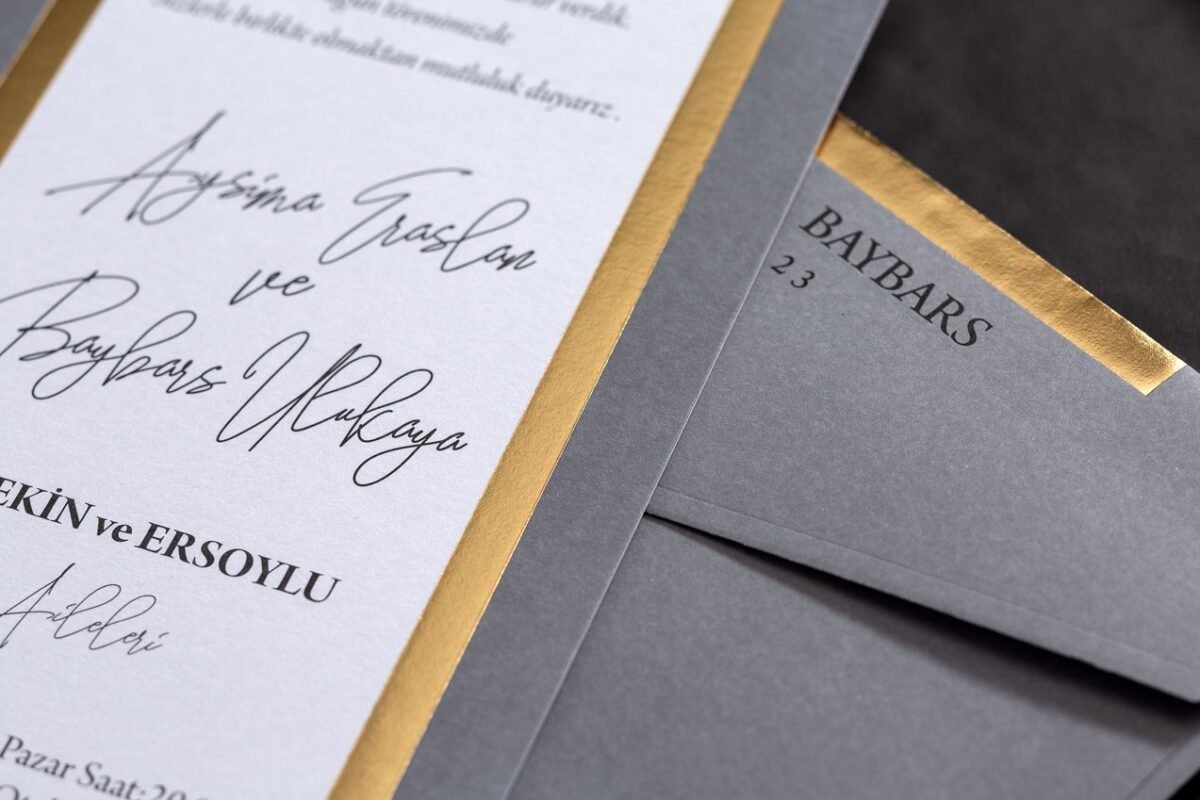 verdik.
törenimizde
Sizlerle birlikte olmaktan mutluluk duyarız.
Aysima Eraslan
ve
Baybars Ulukaya
EKİN ve ERSOYLU
Aileleri
Pazar Saat:20
BAYBARS
2 3